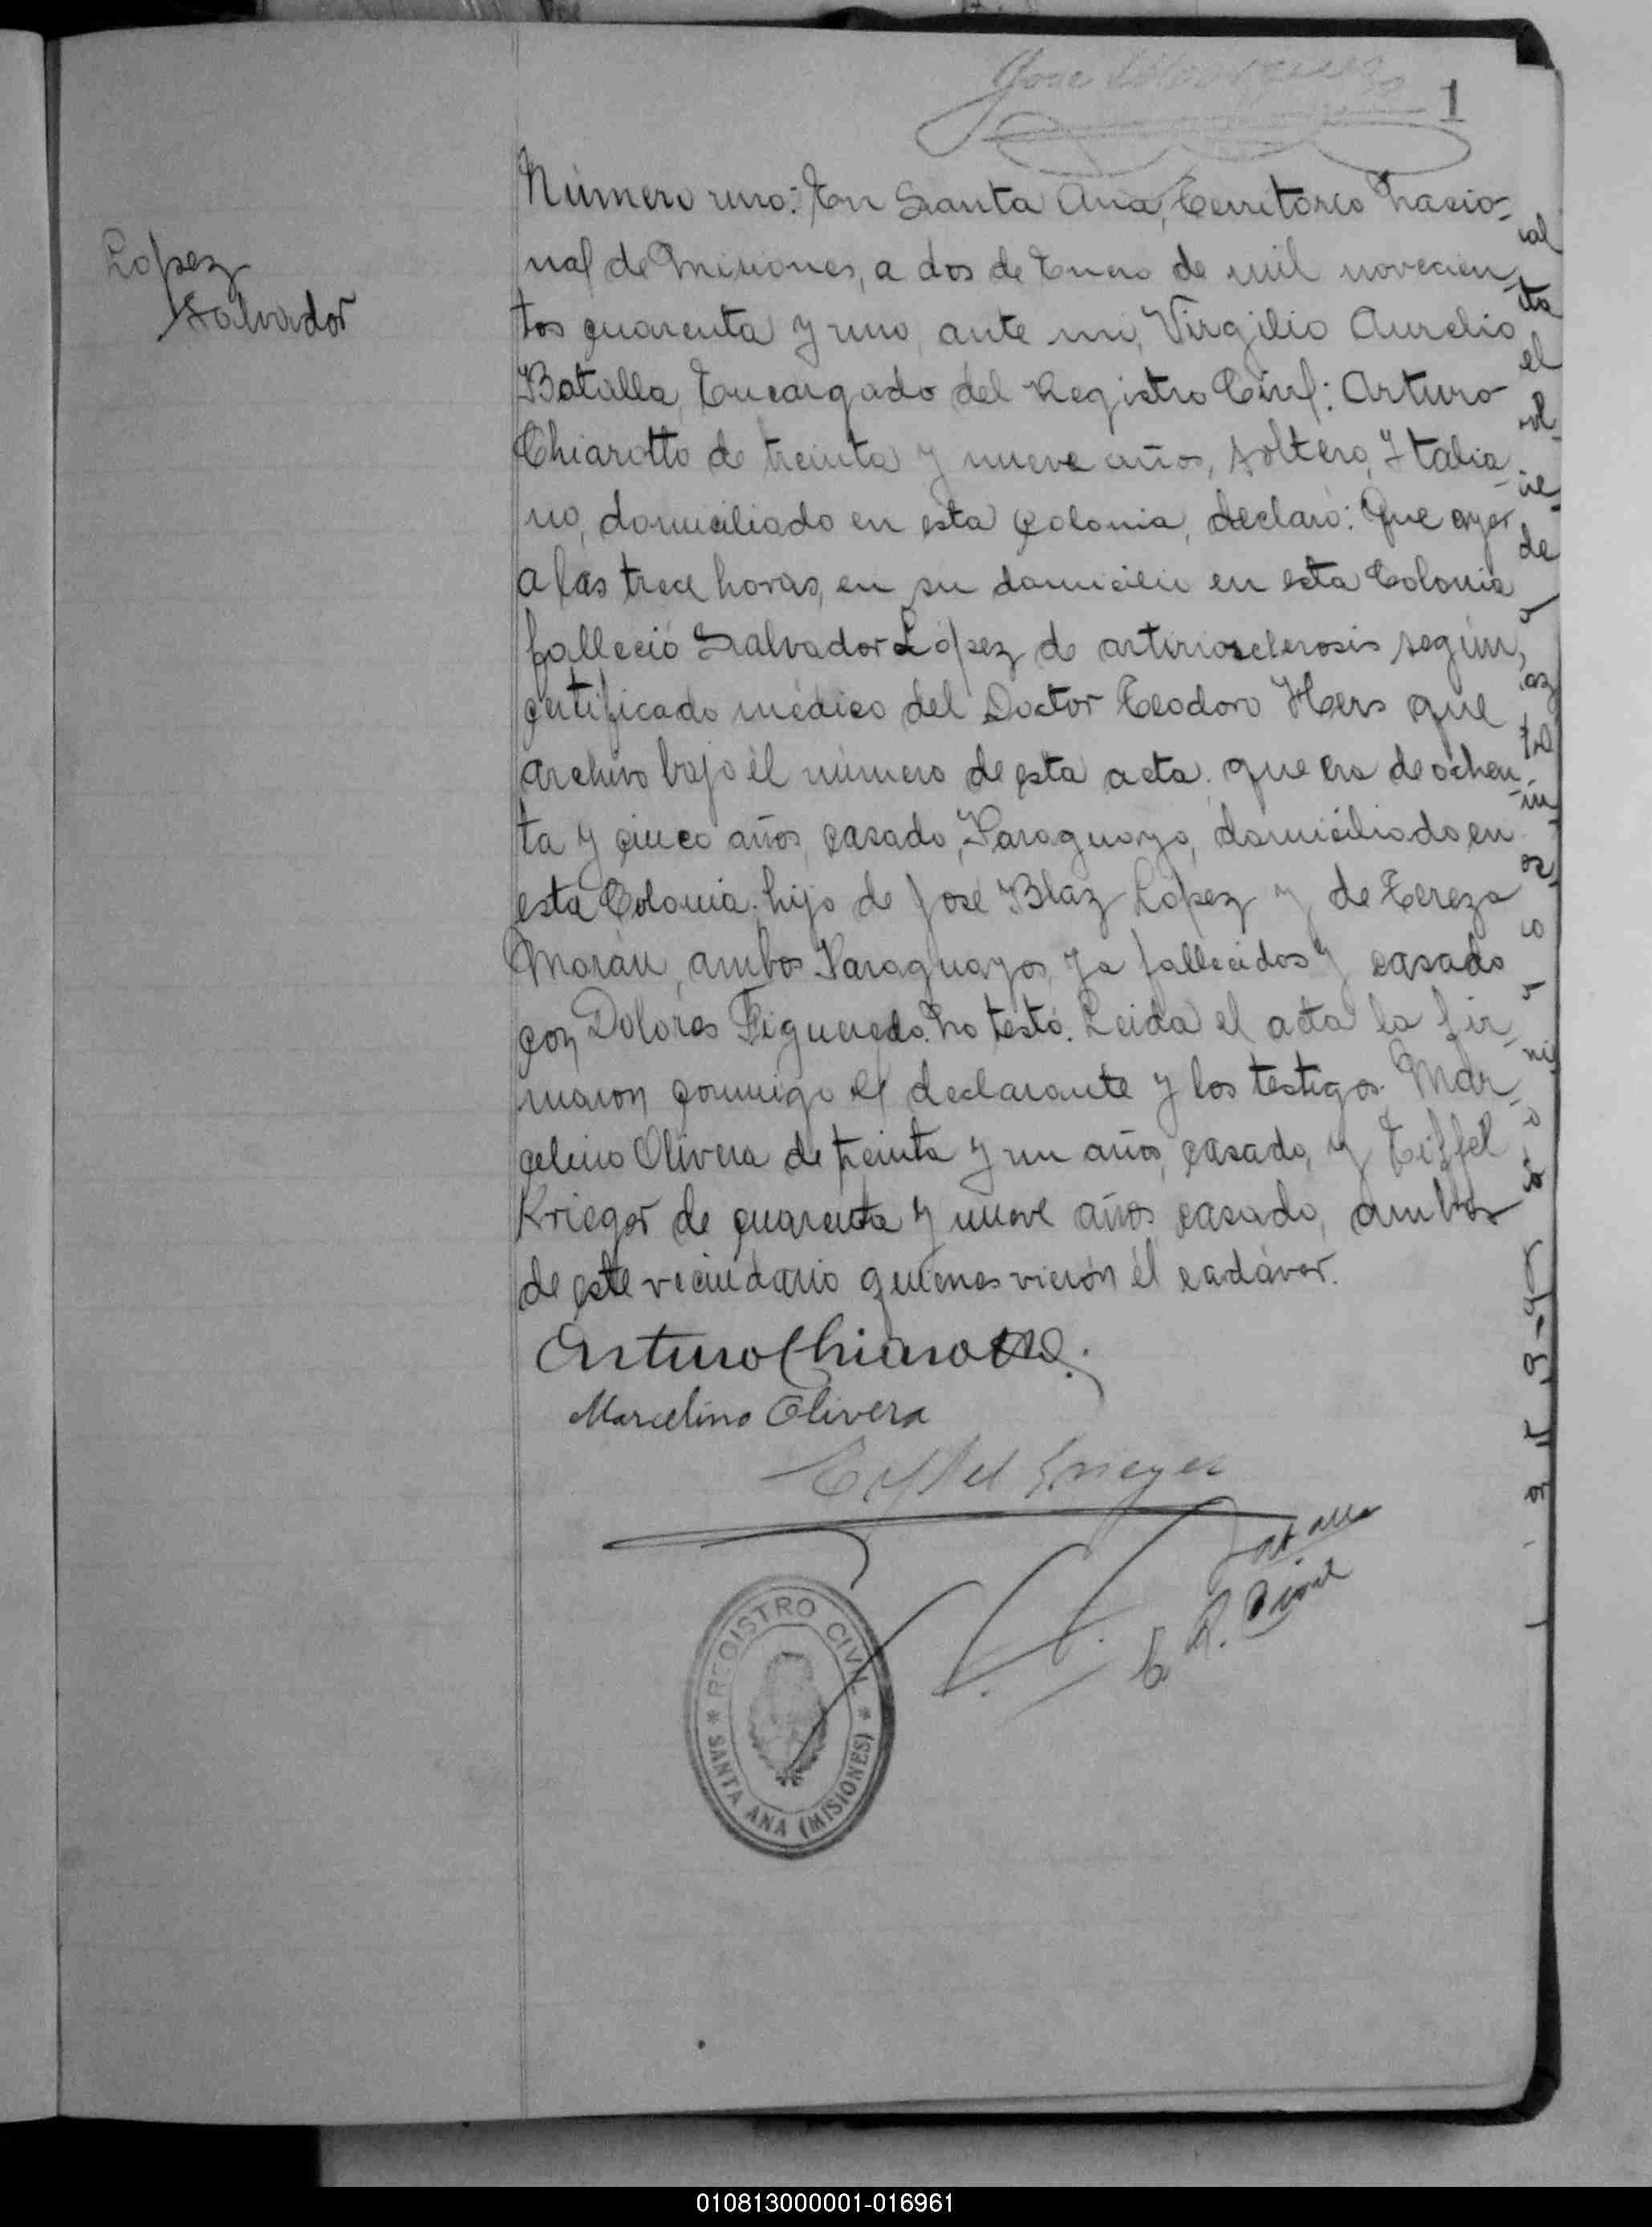 Jose
1
López
Salvador
Número uno: En Santa Ana, Territorio Nacio-
nal de Misiones, a dos de Enero de mil novecien-
tos cuarenta y uno, ante mi, Virgilio Aurelio
Batalla, Encargado del Registro Civil: Arturo
Chiarotto de treinta y nueve años, soltero, Italia-
no, domiciliado en esta Colonia, declaró: Que ayer
a las trece horas, en su domicilio en esta Colonia
falleció Salvador López de arteriosclerosis según
certificado médico del Doctor Teodoro Hers que
archivo bajo el número de esta acta; que era de ochen-
ta y cinco años, casado, Paraguayo, domiciliado en
esta Colonia, hijo de José Blaz López y de Tereza
Morán, ambos Paraguayos, ya fallecidos y casado
con Dolores Figueredo. No testó. Leida el acta la fir-
maron conmigo el declarante y los testigos: Mar-
celino Olivera de treinta y un años, casado, y Eiffel
Krieger de cuarenta y nueve años, casado, ambos
de este vecindario quienes vieron el cadáver.
Arturo Chiarotto.
Marcelino Olivera
REGISTRO CIVIL
* SANTA ANA (MISIONES) *
E. R. Civil
010813000001-016961